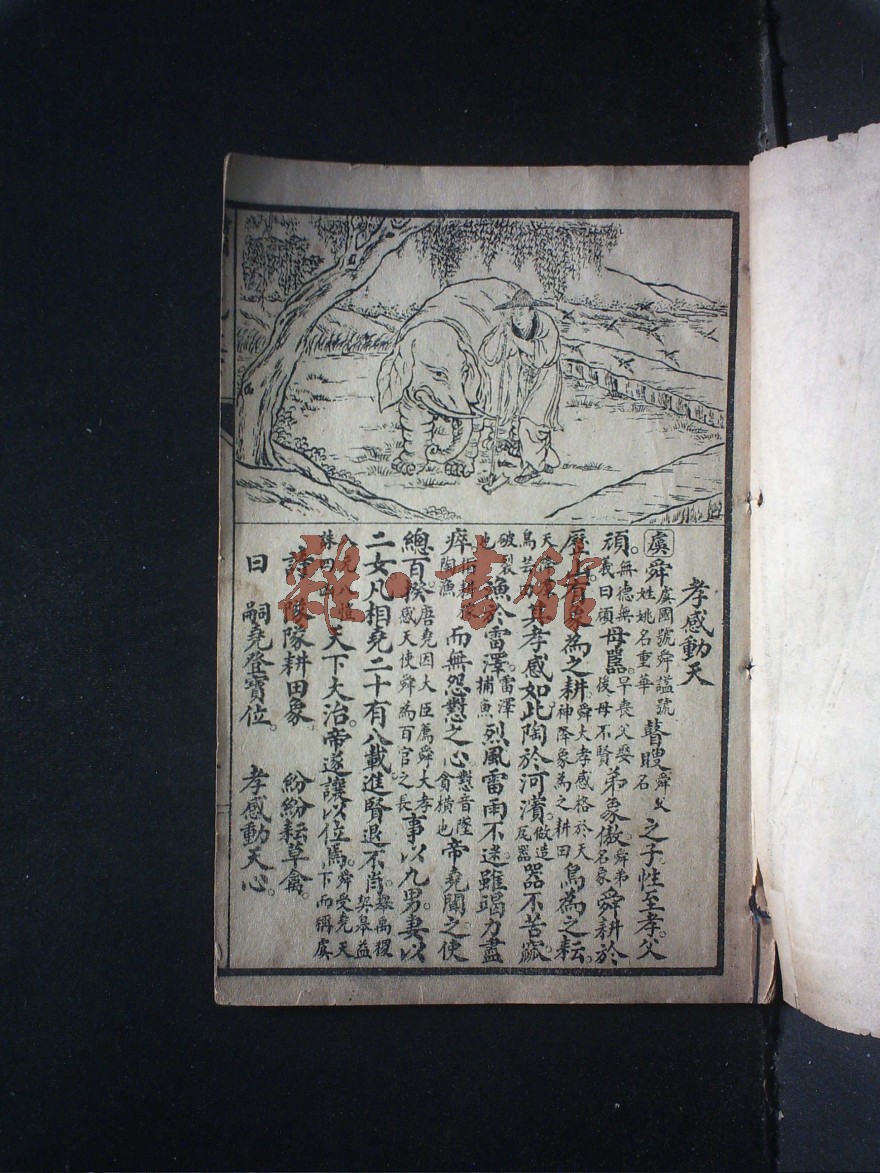 孝感動天
虞舜虞國號舜謚號姓姚名重華瞽瞍舜父名之子。性至孝。父
頑。無德無義曰頑母嚚。早喪父娶後母不賢弟象傲。舜弟名象舜耕於
歷山。有象為之耕。舜大孝感格於天神降象為之耕田鳥為之耘。
其孝感如此。陶於河濱。做造瓦器器不苦窳。
破裂也漁於雷澤。雷澤捕魚烈風雷雨不迷。雖竭力盡
瘁陶漁而無怨懟之心。帝堯聞之。使
總百揆唐堯因大臣薦舜大孝感天使舜為百官之長事以九男。妻以
二女。凡相堯二十有八載。進賢退不肖。舉禹稷契皋益
天下大治。帝遂讓以位焉。舜受堯天下而稱虞
詩 隊隊耕田象 紛紛耘草禽。
曰 嗣堯登寶位。 孝感動天心。
雜·書館